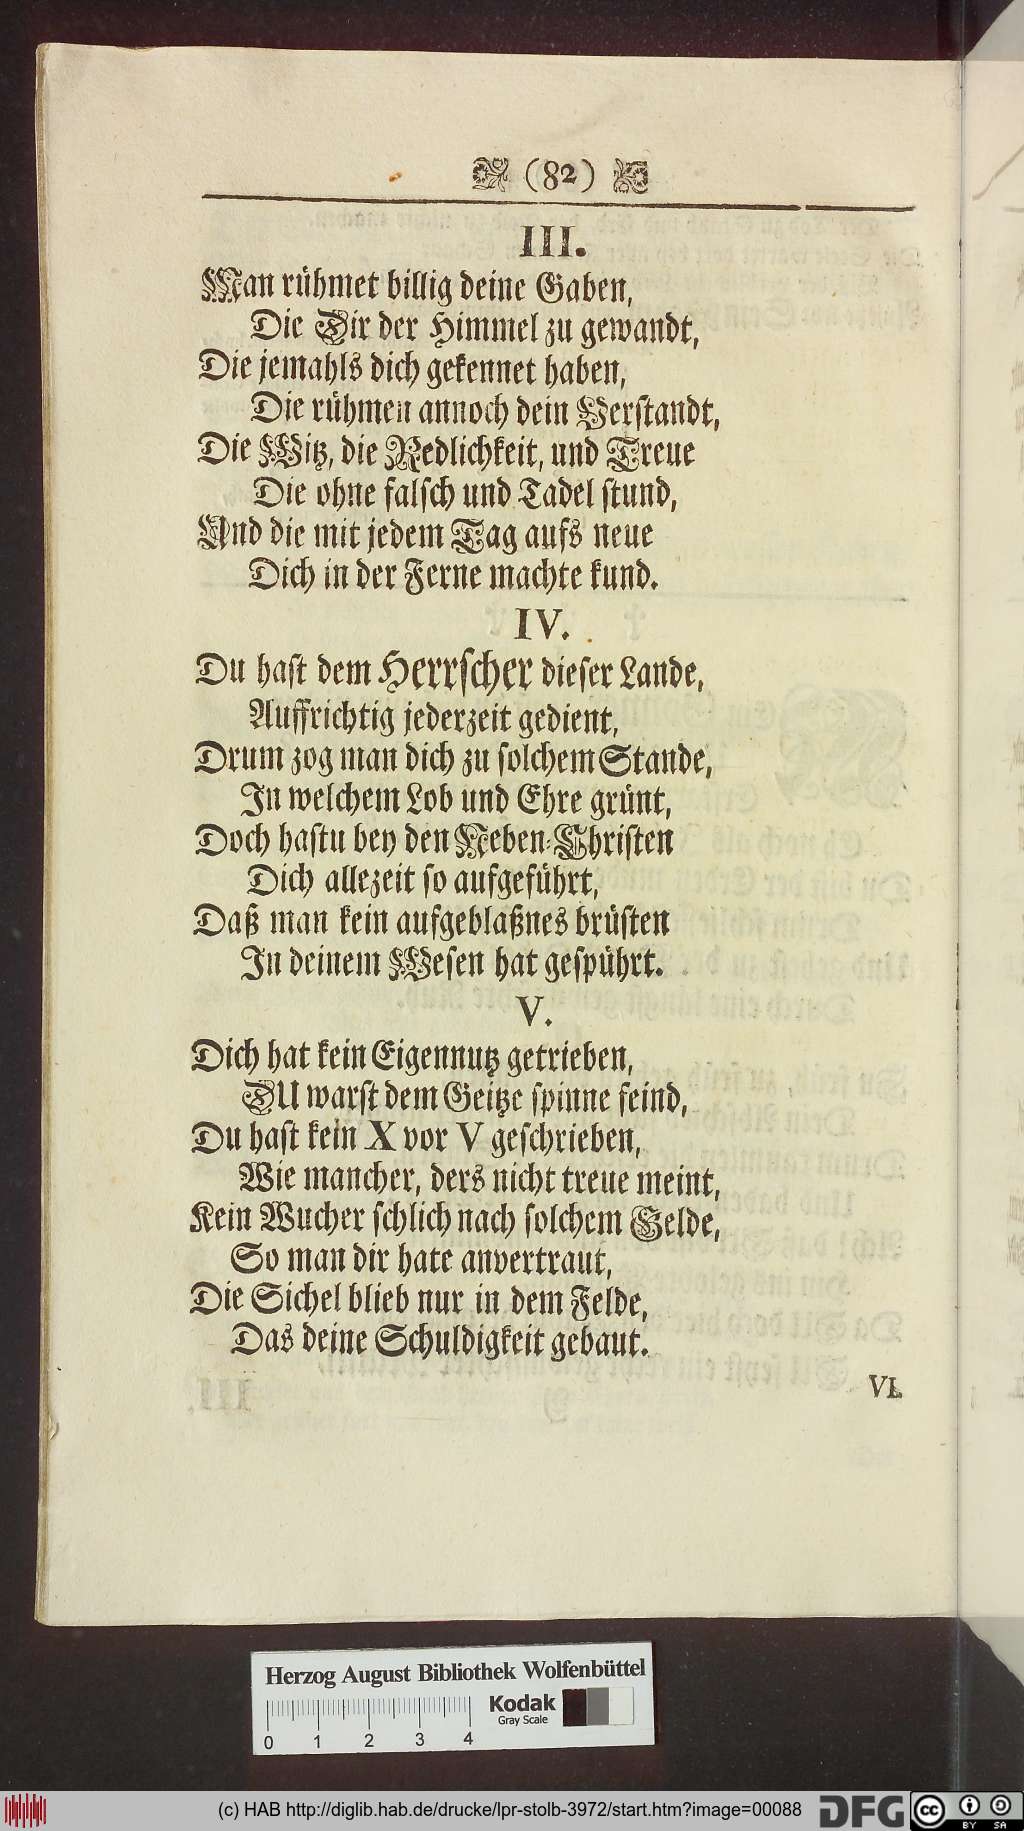 (82)
III.
Man rühmet billig deine Gaben,
Die Dir der Himmel zu gewandt,
Die jemahls dich gekennet haben,
Die rühmen annoch dein Verstandt,
Die Witz, die Redlichkeit, und Treue
Die ohne falsch und Tadel stund,
Und die mit jedem Tag aufs neue
Dich in der Ferne machte kund.
IV.
Du hast dem Herrscher dieser Lande,
Auffrichtig jederzeit gedient,
Drum zog man dich zu solchem Stande,
In welchem Lob und Ehre grünt,
Doch hastu bey den Neben-Christen
Dich allezeit so aufgeführt,
Daß man kein aufgeblaßnes brüsten
In deinem Wesen hat gespührt.
V.
Dich hat kein Eigennutz getrieben,
DU warst dem Geitze spinne feind,
Du hast kein X vor V geschrieben,
Wie mancher, ders nicht treue meint,
Kein Wucher schlich nach solchem Gelde,
So man dir hate anvertraut,
Die Sichel blieb nur in dem Felde,
Das deine Schuldigkeit gebaut.
VI.
Herzog August Bibliothek Wolfenbüttel
Kodak
Gray Scale
0 1 2 3 4
(c) HAB http://diglib.hab.de/drucke/lpr-stolb-3972/start.htm?image=00088
DFG
cc BY SA